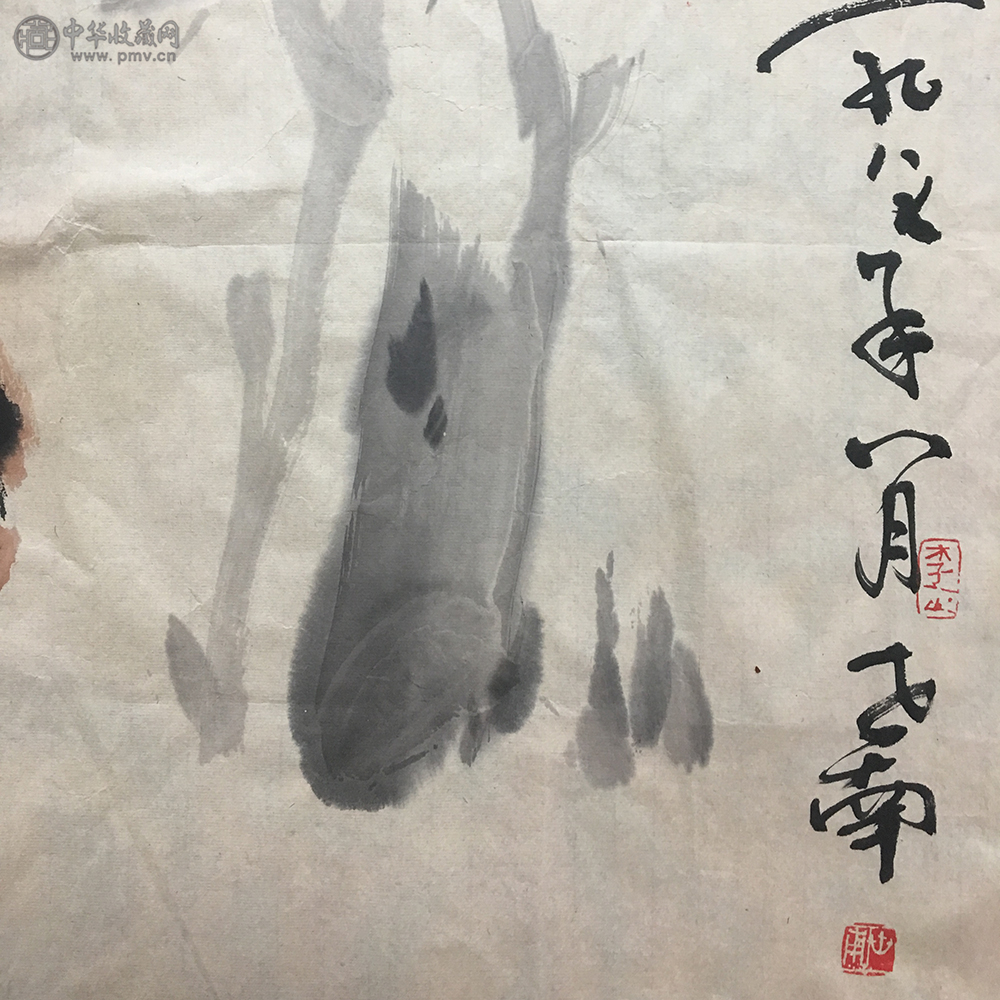 中华收藏网
www.pmv.cn
一九八年八月 世南
李山
世南